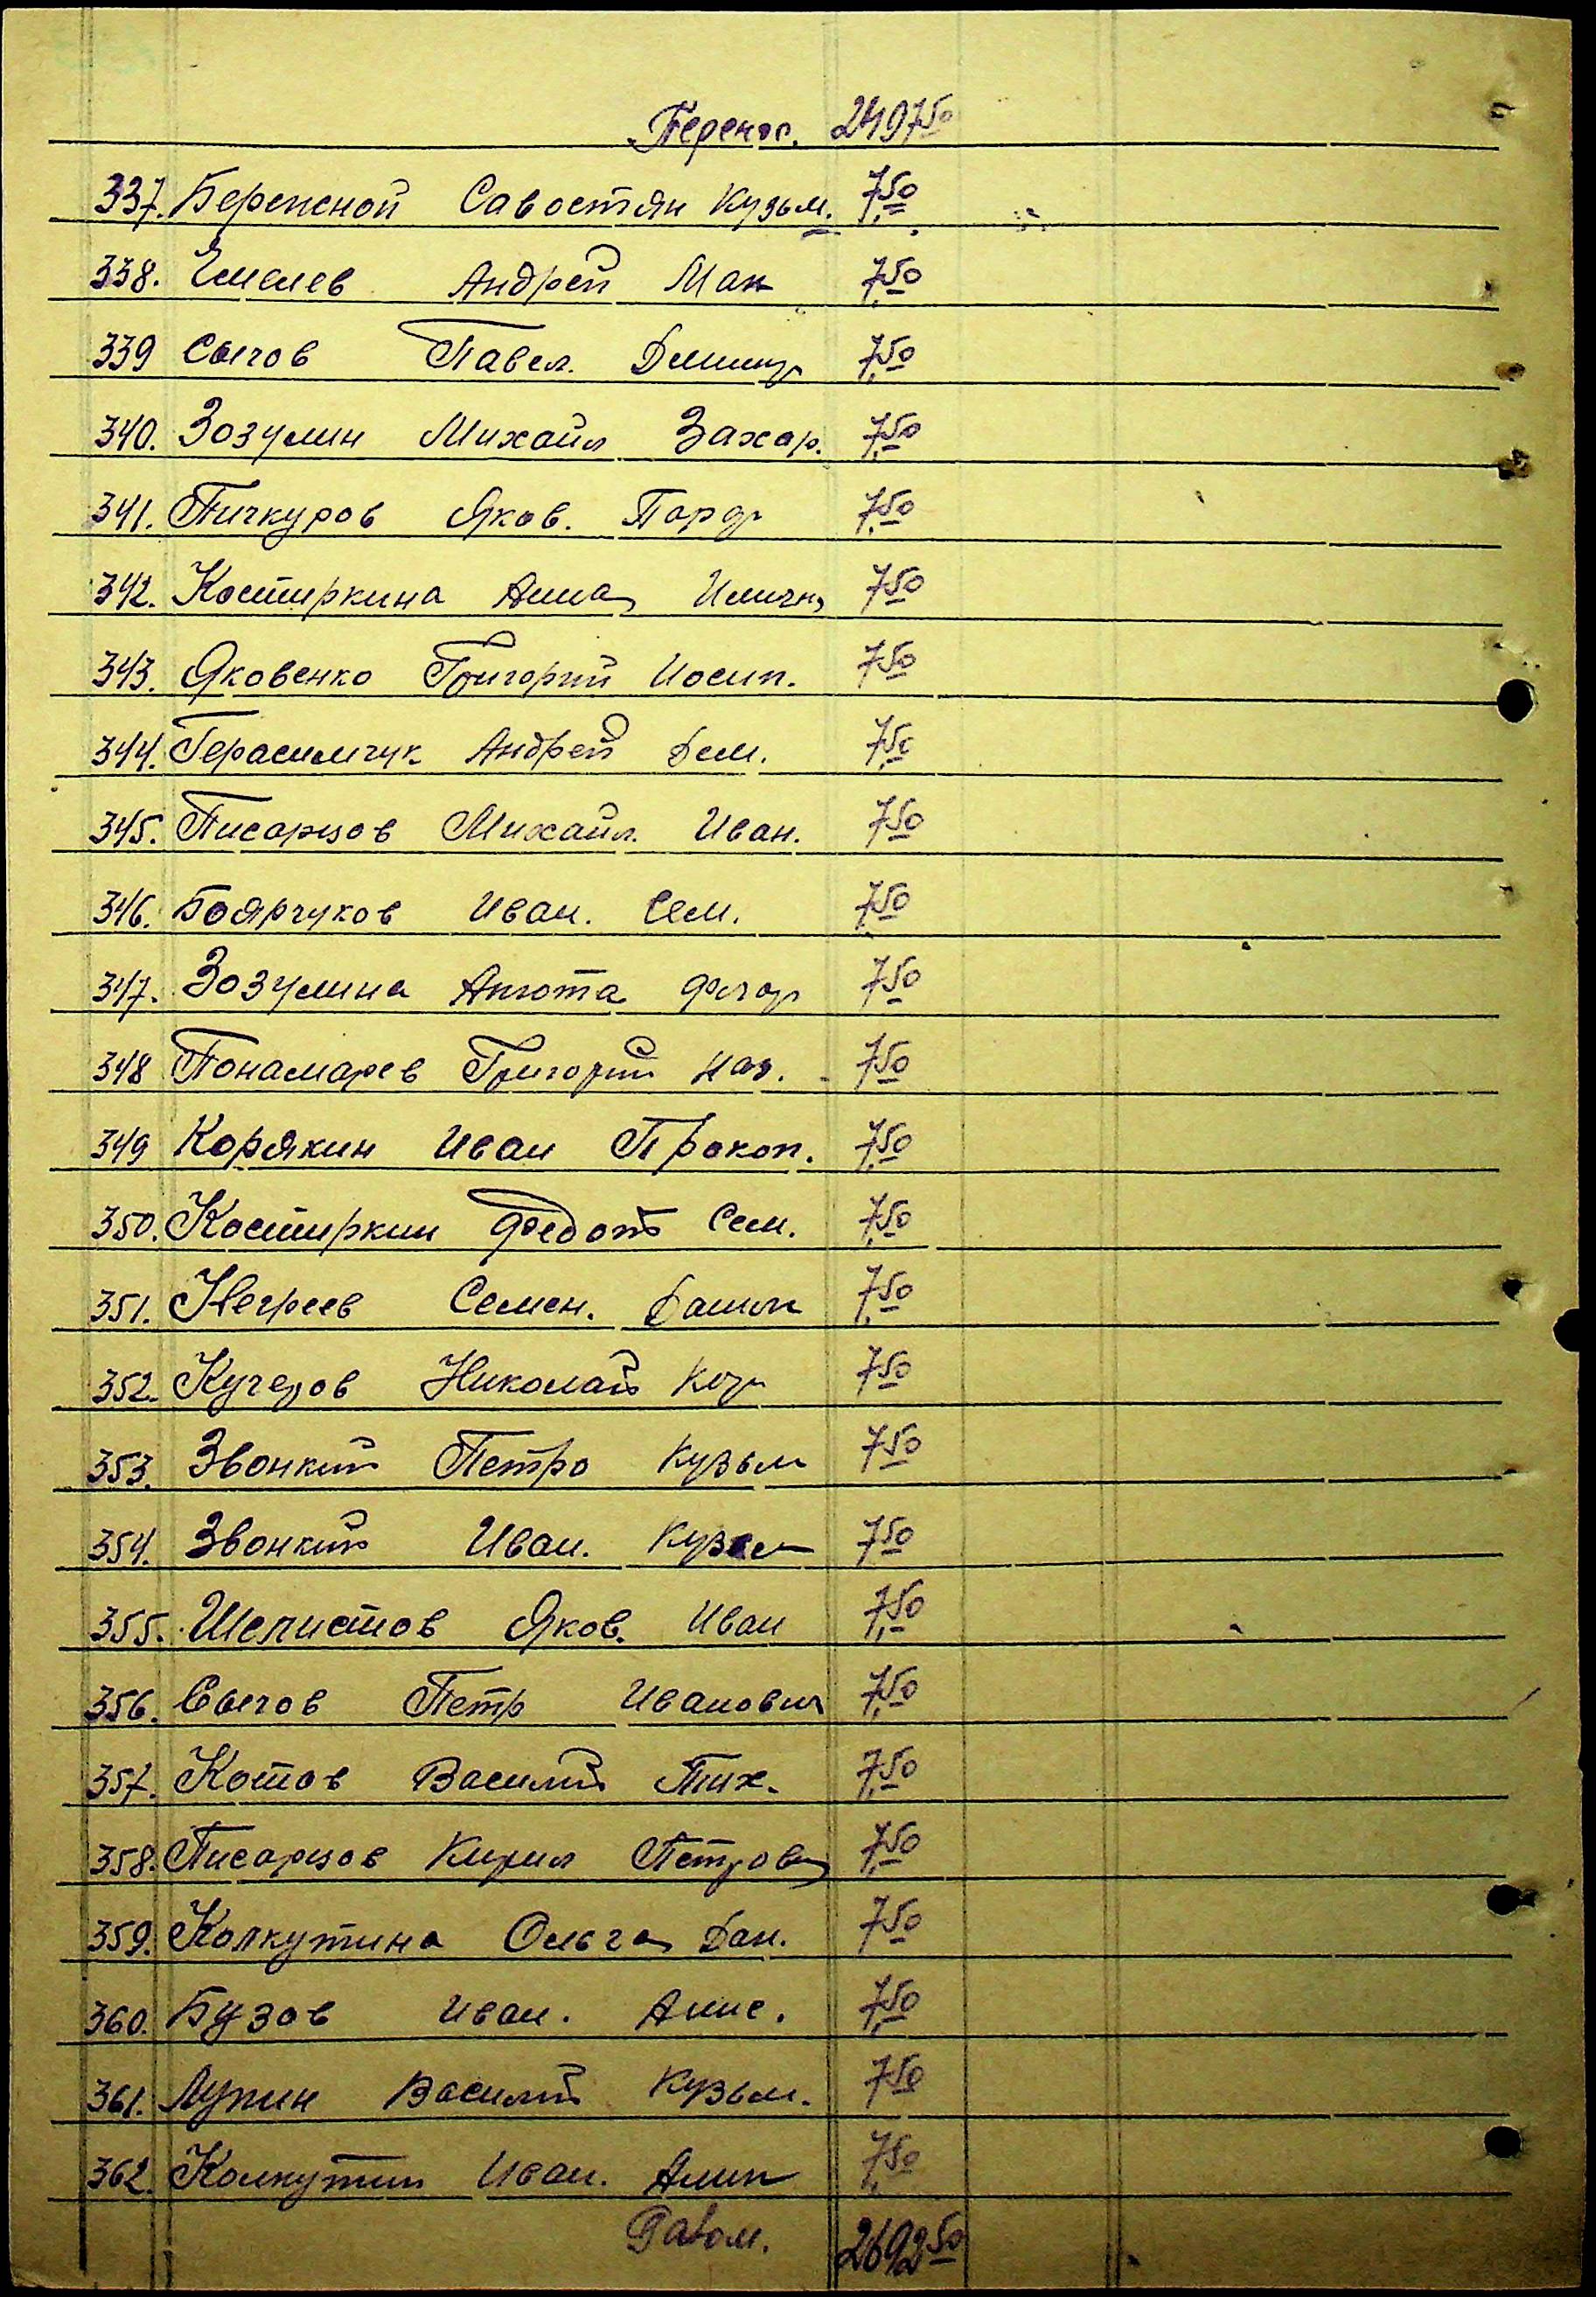 Перенос. 2497 50
337. Бережной Савостян Кузьм. 7,50
338. Емелев Андрей Мак 7,50
339 Сычов Павел. Дмитр 7,50
340. Зозулин Михайл Захар. 7,50
341. Пичкуров Яков. 7,50
342. Костиркина Анна 7,50
343. Яковенко Григорий Иосип. 7,50
344. Герасимчук Андрей Дем. 7,50
345. Писарцов Михайл. Иван. 7,50
346. Боярчуков Иван. Сем. 7,50
347. Зозулина Анюта 7,50
348 Понамарев Григорий Наз. 7,50
349 Корякин Иван Прокоп. 7,50
350. Костиркин Федот Сем. 7,50
351. Негреев Семен. 7,50
352. Кучеров Николай 7,50
353. Звонкий Петро Кузьм 7,50
354. Звонкий Иван. Кузьм 7,50
355. Шелистов Яков. Иван 7,50
356. Сычов Петр Иванович 7,50
357. Котов Василий Тих. 7,50
358. Писарцов Кирил Петров 7,50
359. Колкутина Ольга Дан. 7,50
360. Бузов Иван. Анис. 7,50
361. Лупин Василий Кузьм. 7,50
362. Колкутин Иван. 7,50
Разом. 2692 50